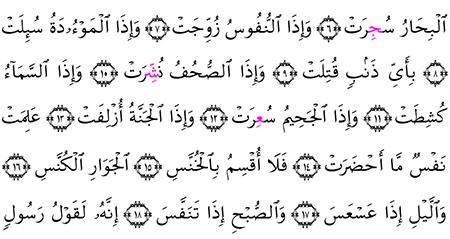 ٱلْبِحَارُ سُجِرَتْ ﴿٦﴾ وَإِذَا ٱلنُّفُوسُ زُوِّجَتْ ﴿٧﴾ وَإِذَا ٱلْمَوْءُۥدَةُ سُئِلَتْ
﴿٨﴾ بِأَىِّ ذَنۢبٍ قُتِلَتْ ﴿٩﴾ وَإِذَا ٱلصُّحُفُ نُشِّرَتْ ﴿١٠﴾ وَإِذَا ٱلسَّمَآءُ
كُشِطَتْ ﴿١١﴾ وَإِذَا ٱلْجَحِيمُ سُعِرَتْ ﴿١٢﴾ وَإِذَا ٱلْجَنَّةُ أُزْلِفَتْ ﴿١٣﴾ عَلِمَتْ
نَفْسٌ مَّا أَحْضَرَتْ ﴿١٤﴾ فَلَا أُقْسِمُ بِٱلْخُنَّسِ ﴿١٥﴾ ٱلْجَوَارِ ٱلْكُنَّسِ ﴿١٦﴾
وَٱلَّيْلِ إِذَا عَسْعَسَ ﴿١٧﴾ وَٱلصُّبْحِ إِذَا تَنَفَّسَ ﴿١٨﴾ إِنَّهُۥ لَقَوْلُ رَسُولٍ